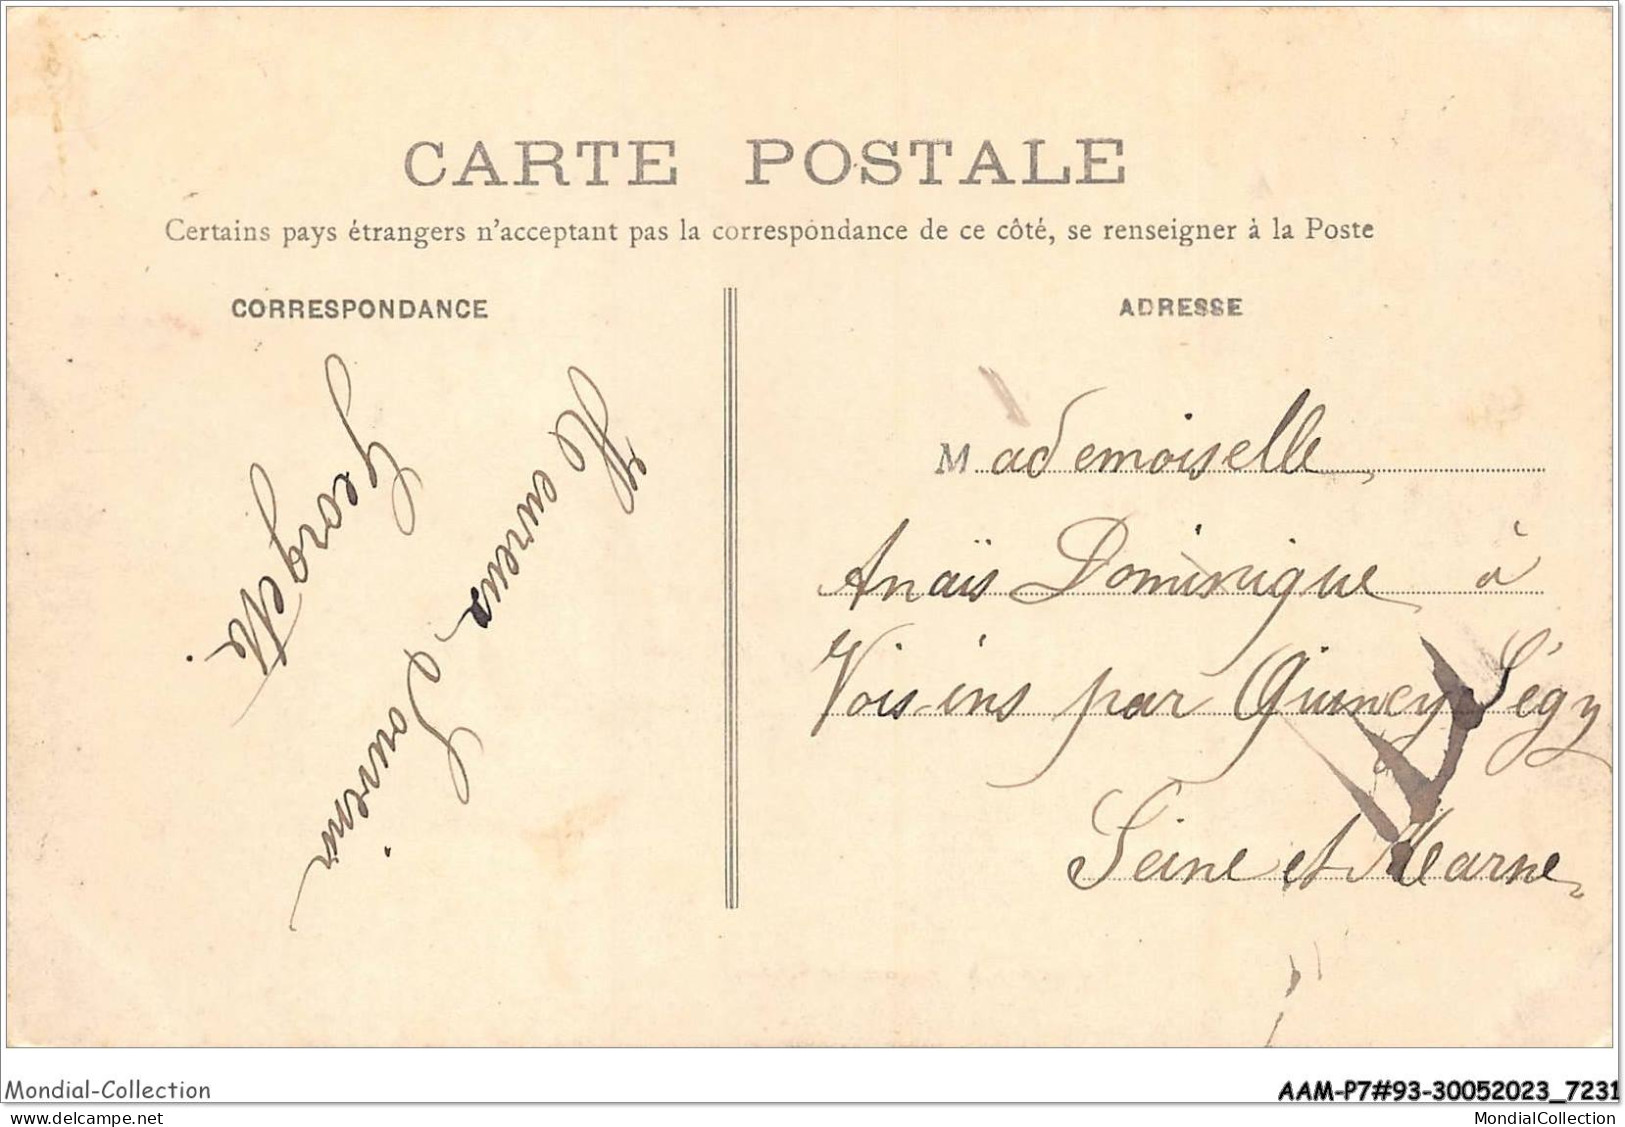 CARTE POSTALE
Certains pays étrangers n'acceptant pas la correspondance de ce côté, se renseigner à la Poste
CORRESPONDANCE
Heureux
Souvenir
Georgette.
ADRESSE
Mademoiselle,
Anaïs Dominique à
Voisins par Quincy Ségy
Seine et Marne
Mondial-Collection
AAM-P7#93-30052023_7231
www.delcampe.net
MondialCollection